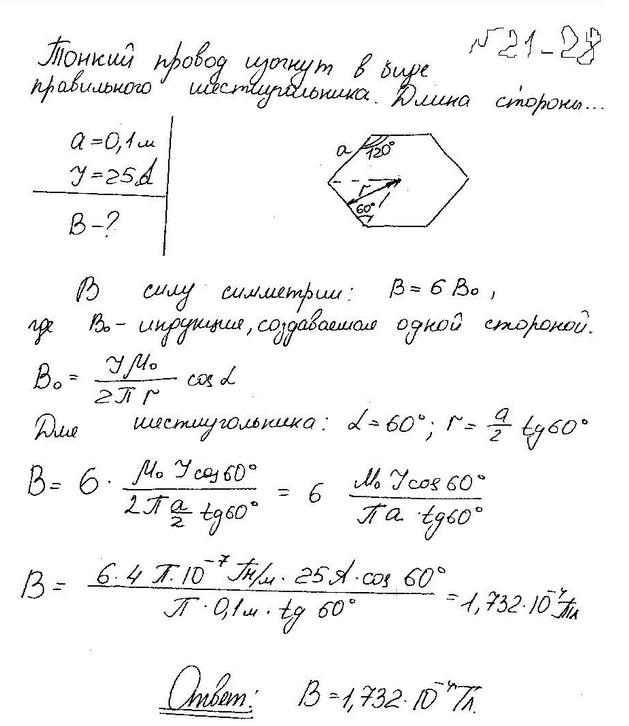 №21-28
Тонкий провод изогнут в виде
правильного шестиугольника. Длина стороны...
a = 0,1 м
J = 25 А
B - ?
a 120°
r
60°
В силу симметрии: B = 6 B₀,
где B₀ - индукция, создаваемая одной стороной.
B₀ = Jμ₀/2πr cos α
Для шестиугольника: α = 60°; r = a/2 tg60°
B = 6 · μ₀ J cos60°/2π a/2 tg60° = 6 μ₀ J cos60°/πa · tg60°
B = 6·4π·10⁻⁷ Гн/м · 25А · cos 60°/π · 0,1м · tg 60° = 1,732·10⁻⁴ Тл
Ответ: B = 1,732·10⁻⁴ Тл.